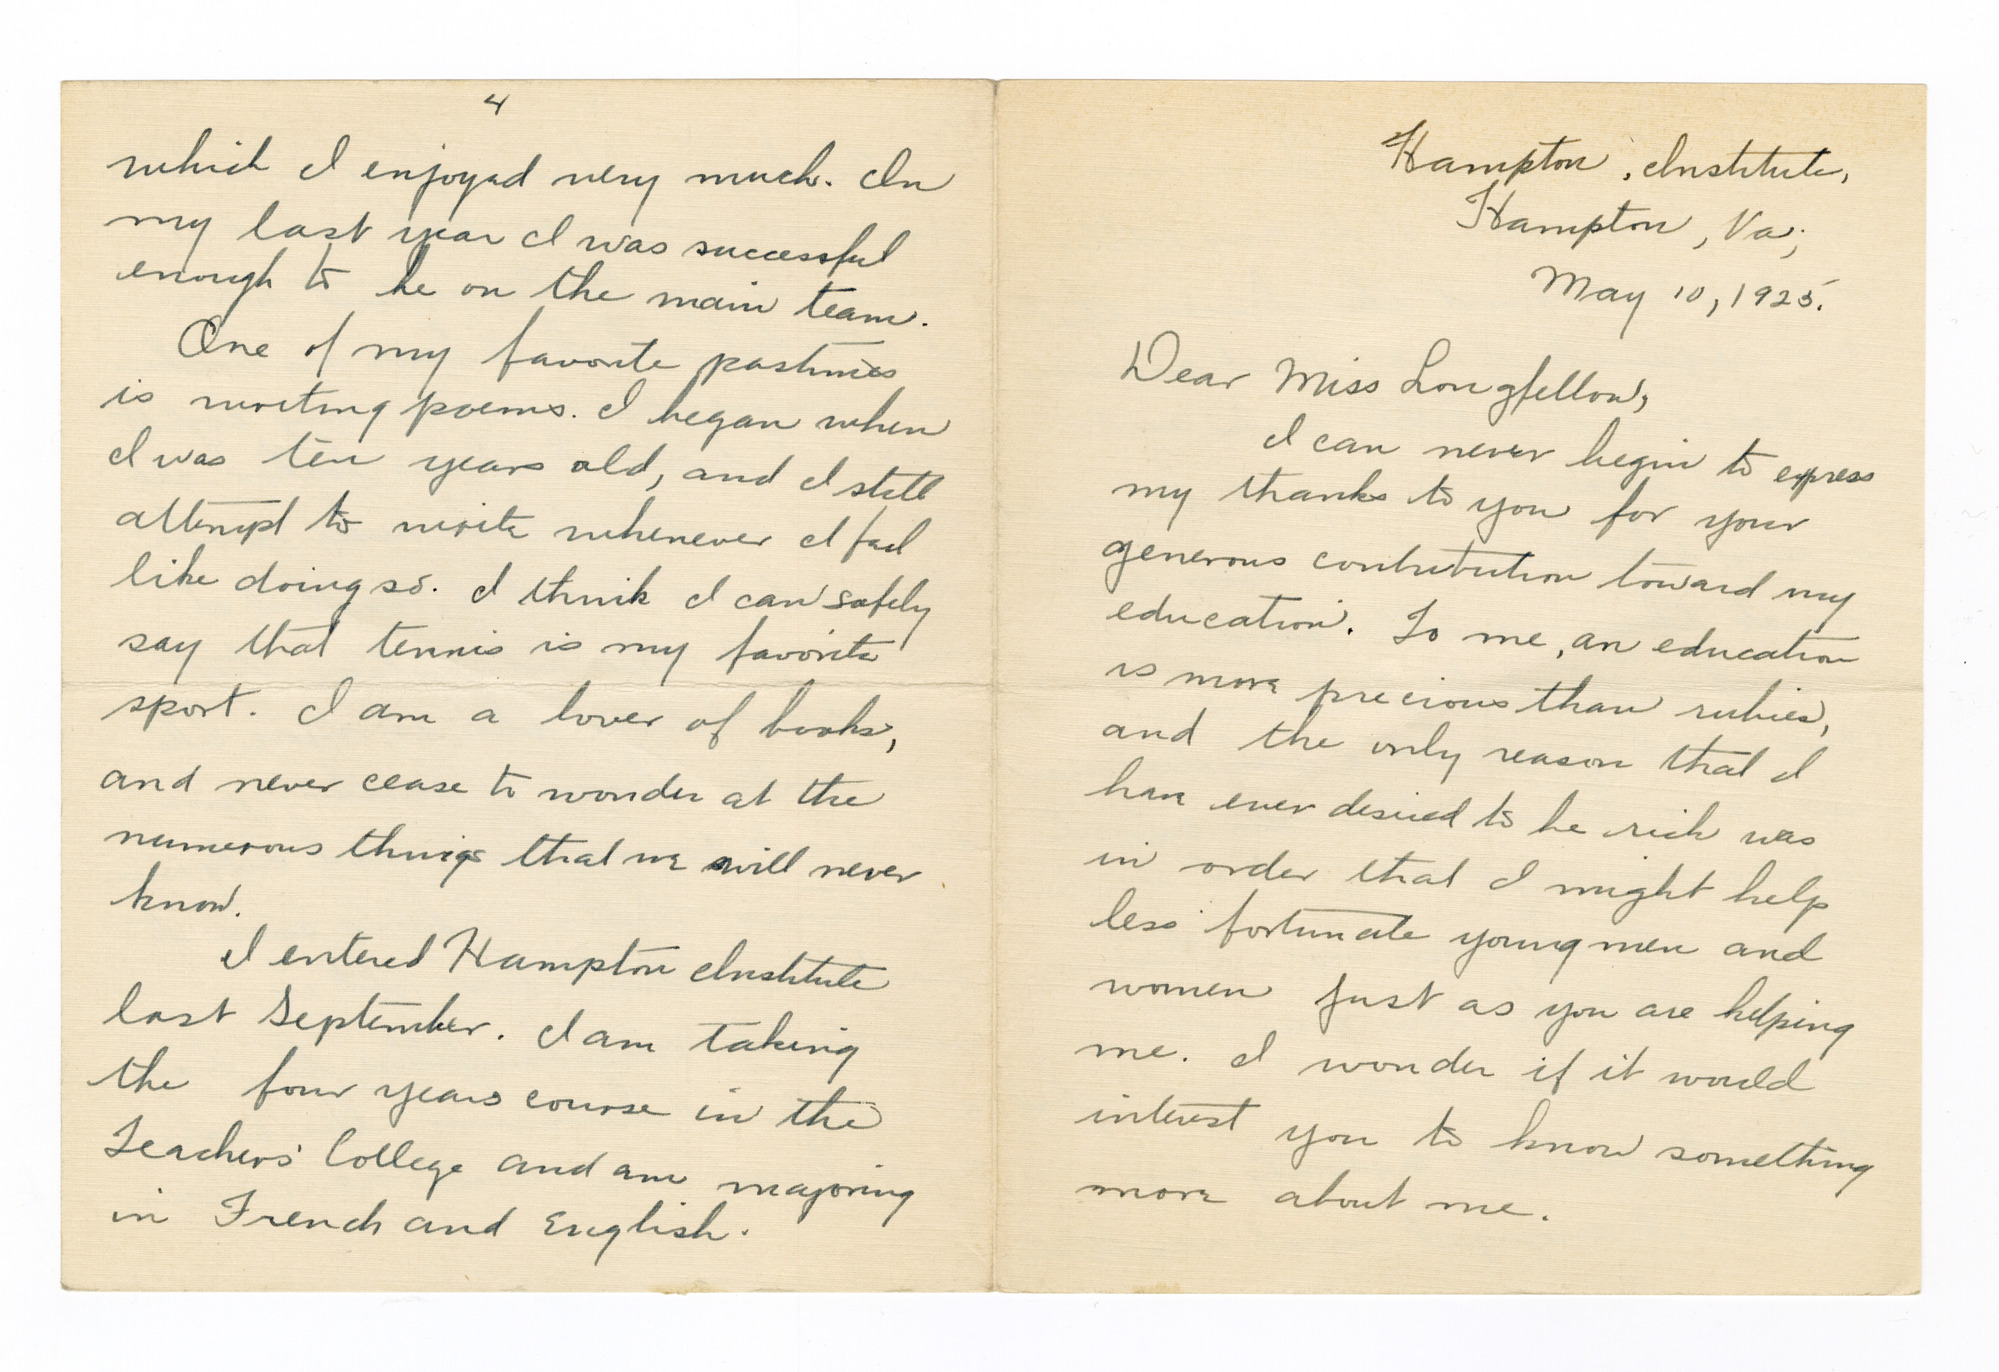 Hampton, Institute,
Hampton, Va;
May 10, 1925.
Dear Miss Longfellow,
I can never begin to express
my thanks to you for your
generous contribution toward my
education. To me, an education
is more precious than rubies,
and the only reason that I
have ever desired to be rich was
in order that I might help
less fortunate young men and
women just as you are helping
me. I wonder if it would
interest you to know something
more about me.
4
which I enjoyed very much. In
my last year I was successful
enough to be on the main team.
One of my favorite pastimes
is writing poems. I began when
I was ten years old, and I still
attempt to write whenever I feel
like doing so. I think I can safely
say that tennis is my favorite
sport. I am a lover of books,
and never cease to wonder at the
numerous things that we will never
know.
I entered Hampton Institute
last September. I am taking
the four years course in the
Teachers' College and am majoring
in French and English.